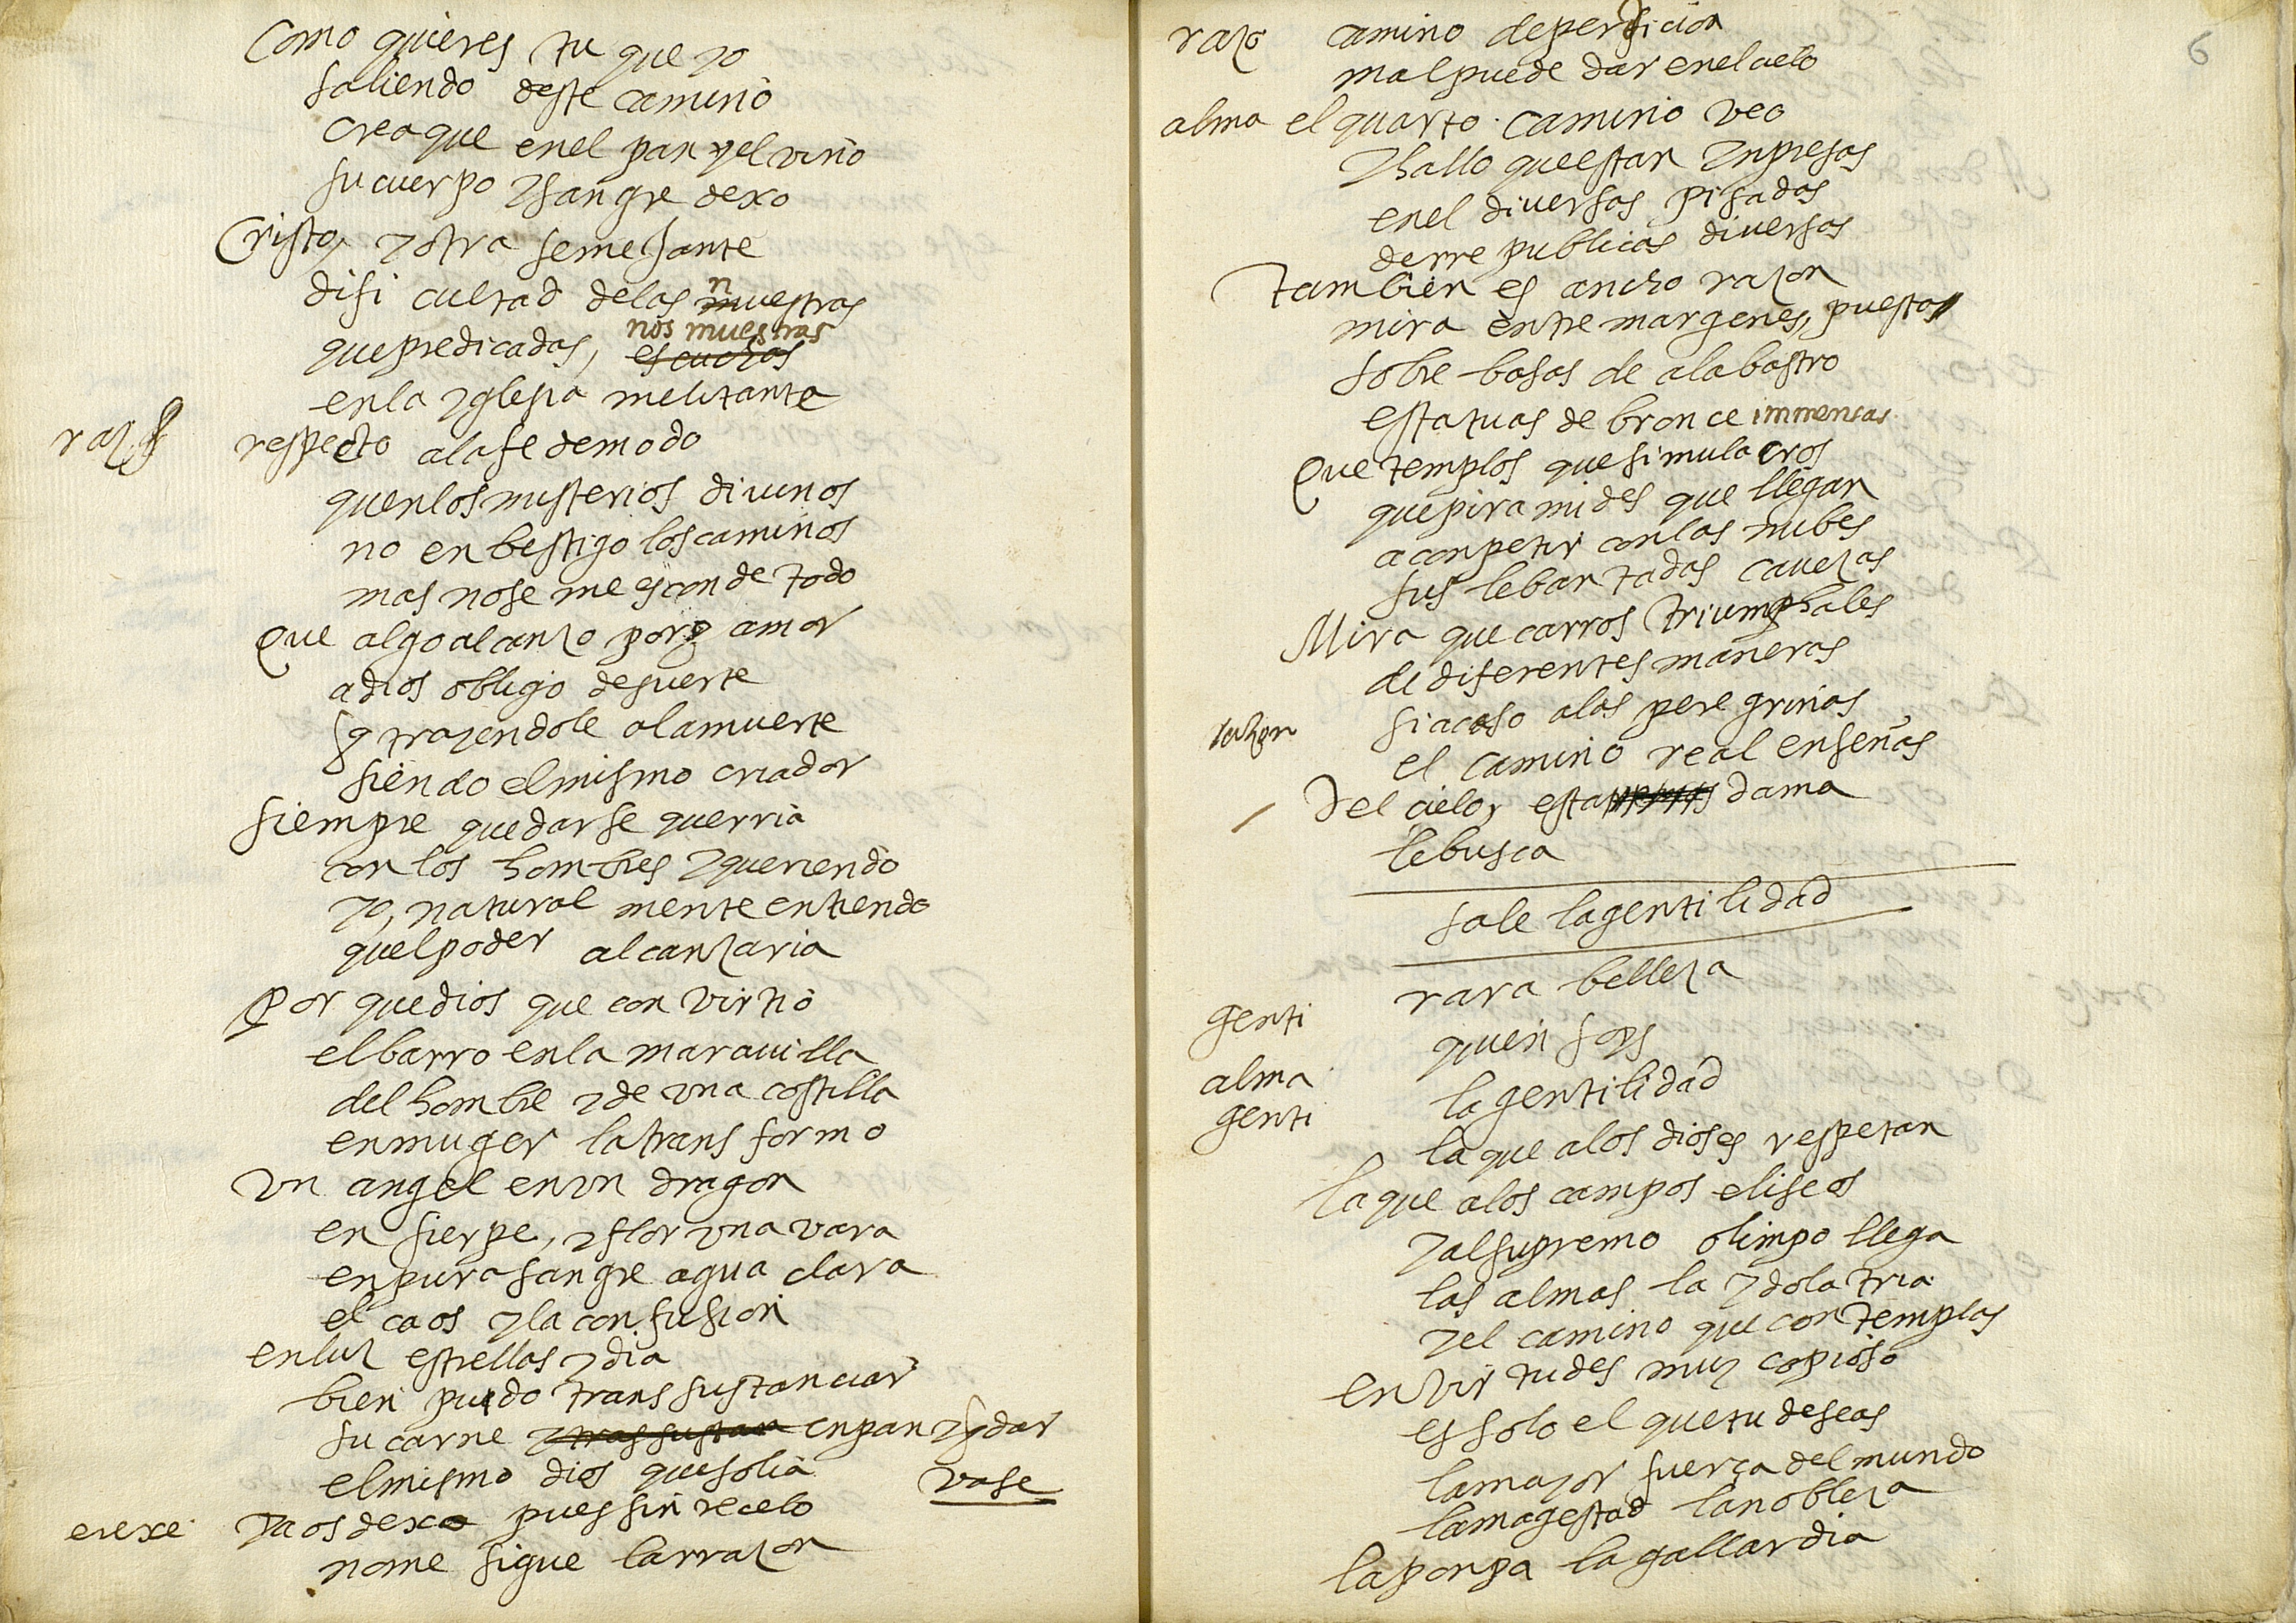 Como quieres tu que yo
saliendo deste camino
crea que enel pan yel vino
su cuerpo y sangre dexo
Cristo, y otra semejante
difi cultad delas nuestras
que predicadas, nos muestras
escuchas
enla yglesia melitante
raz respecto ala fe de modo
quen los misterios divinos
no enbestigo los caminos
mas no se me esconde todo
que algo alcanzo porq amor
a dios obligo de suerte
q trayendole ala muerte
siendo el mismo criador
siempre quedarse querria
con los hombres y queriendo
yo, natural mente entiendo
quel poder alcanzaria
Por que dios que con virtio
el barro en la maravilla
del hombre y de una costilla
en muger la trans formo
un angel en un dragon
en sierpe, y flor una vara
en pura sangre agua clara
el caos y la confusion
en luz estrellas y dia
bien pudo trans sustanciar
su carne y trassustan en pan y q dar
el mismo dios que solia
vase
erexe ya os dexo pues sin recelo
no me sigue la rrazon
6
razo camino de perdicion
mal puede dar en el cielo
alma el quarto camino veo
y hallo questan ynpresas
en el diversas pisadas
de rre publicas diversas
tambien es ancho razon
mira entre margenes, puestas
sobre basas de alabastro
estatuas de bronce immensas
Que templos que simulacros
que piramides que llegan
a conpetir con las nubes
sus lebantadas cavezas
Mira que carros triumphales
de diferentes maneras
razon si acaso a las peregrinas
el camino real enseñas
Del cielo, esta dama
le busca
sale la gentilidad
genti rara belleza
alma quien soys
genti la gentilidad
la que a los dioses respetan
la que a los campos eliseos
y al supremo olimpo llega
las almas la ydolatria
y el camino que contemplas
en virtudes muy copioso
es solo el que tu deseas
la mayor fuerça del mundo
la magestad la nobleza
la ponpa la gallardia